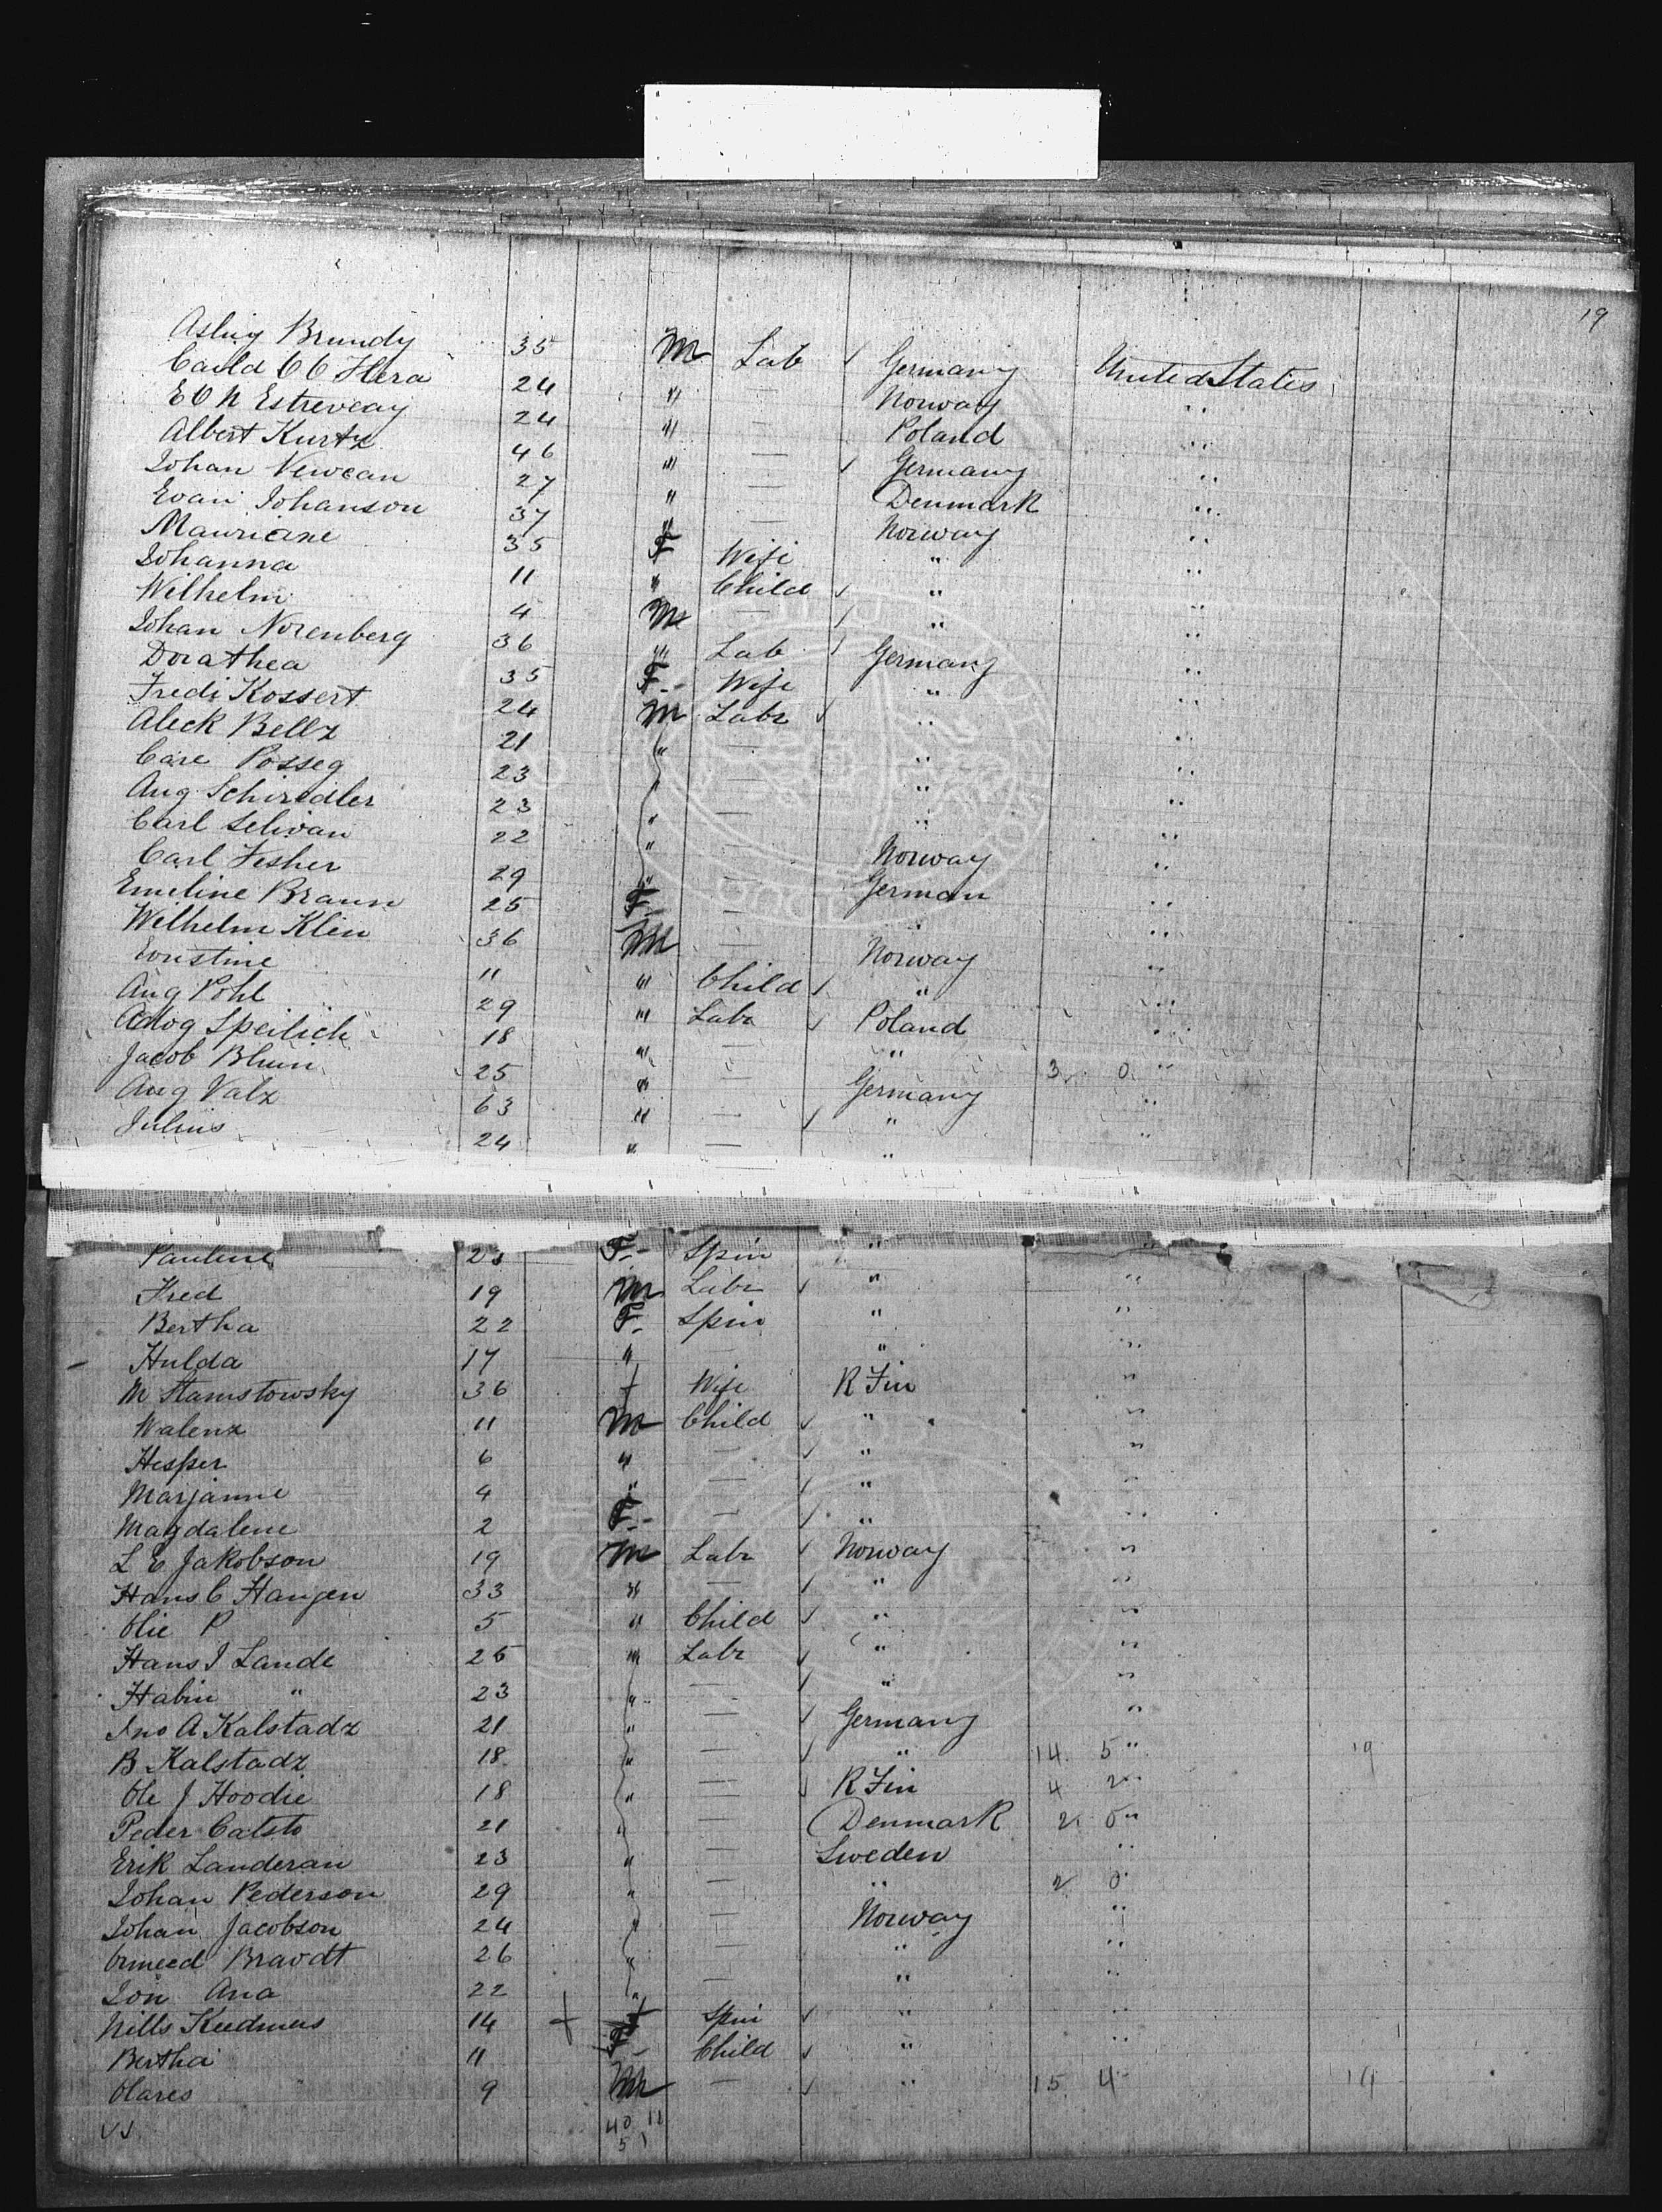 19
Asling Brundy 35 M Lab ✓ Germany United States
Carld C C Hera 24 " — Norway "
E O N Estreveay 24 " — Poland "
Albert Kurtz 46 " — ✓ Germany "
Johan Vewean 27 " — Denmark "
Evan Johanson 37 " — Norway "
Mauriane 35 F Wife " "
Johanna 11 " Child ✓ " "
Wilhelm 4 M — ✓ " "
Johan Norenberg 36 " Lab ✓ Germany "
Dorathea 35 F Wife " "
Fredi Kossert 24 M Labr ✓ " "
Aleck Bellz 21 " — " "
Care Posseg 23 " — " "
Aug Schiredler 23 " — " "
Carl Selivan 22 " — Norway "
Carl Fesher 29 " — German "
Emeline Braun 25 F — " "
Wilhelm Klein 36 M — Norway "
Ernstine 11 " Child ✓ " "
Aug Pohl 29 " Labr ✓ Poland "
Adog Speilich 18 " — " "
Jacob Blum 25 " — Germany 3 0 "
Aug Valz 63 " — ✓ " "
Julius 24 " — " "
Pauline 23 F Spin " "
Fred 19 M Labr ✓ " "
Bertha 22 F Spin " "
Hulda 17 " — " "
M Stamstowsky 36 + Wife R Fin "
Walenz 11 M Child ✓ " "
Hesper 6 " — ✓ " "
Marjanne 4 " — ✓ " "
Magdalene 2 F — ✓ " "
L E Jakobson 19 M Labr ✓ Norway "
Hans C Haugen 33 " — ✓ " "
Olie P 5 " Child ✓ " "
Hans J Lande 25 " Labr ✓ " "
Habin " 23 " — ✓ " "
Jno A Kalstadz 21 " — ✓ Germany "
B Kalstadz 18 " — ✓ " 14 5 " 19
Ole J Hoodie 18 " — ✓ R Fin 4 2 "
Peder Calsto 21 " — Denmark 2 0 "
Erik Landeran 23 " — Sweden "
Johan Pederson 29 " — " 2 0 "
Johan Jacobson 24 " — Norway "
Bravdt 26 " — " "
Jon Ana 22 " — " "
Nills 14 + F Spin ✓ " "
Bertha 11 F Child ✓ " "
Olares 9 M — ✓ " 15 4 " 19
40 11
5 1